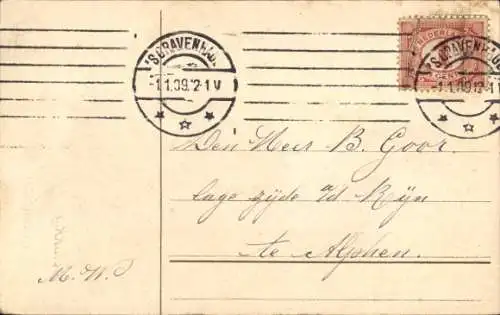 'SGRAVENHAGE
-1.1.09.12-1V
NEDERLAND
CENT
'SGRAVENHAGE
-1.1.09.12-1V
Den Heer B. Goor.
lage zijde a/d Rijn
te Alphen.
M. W.